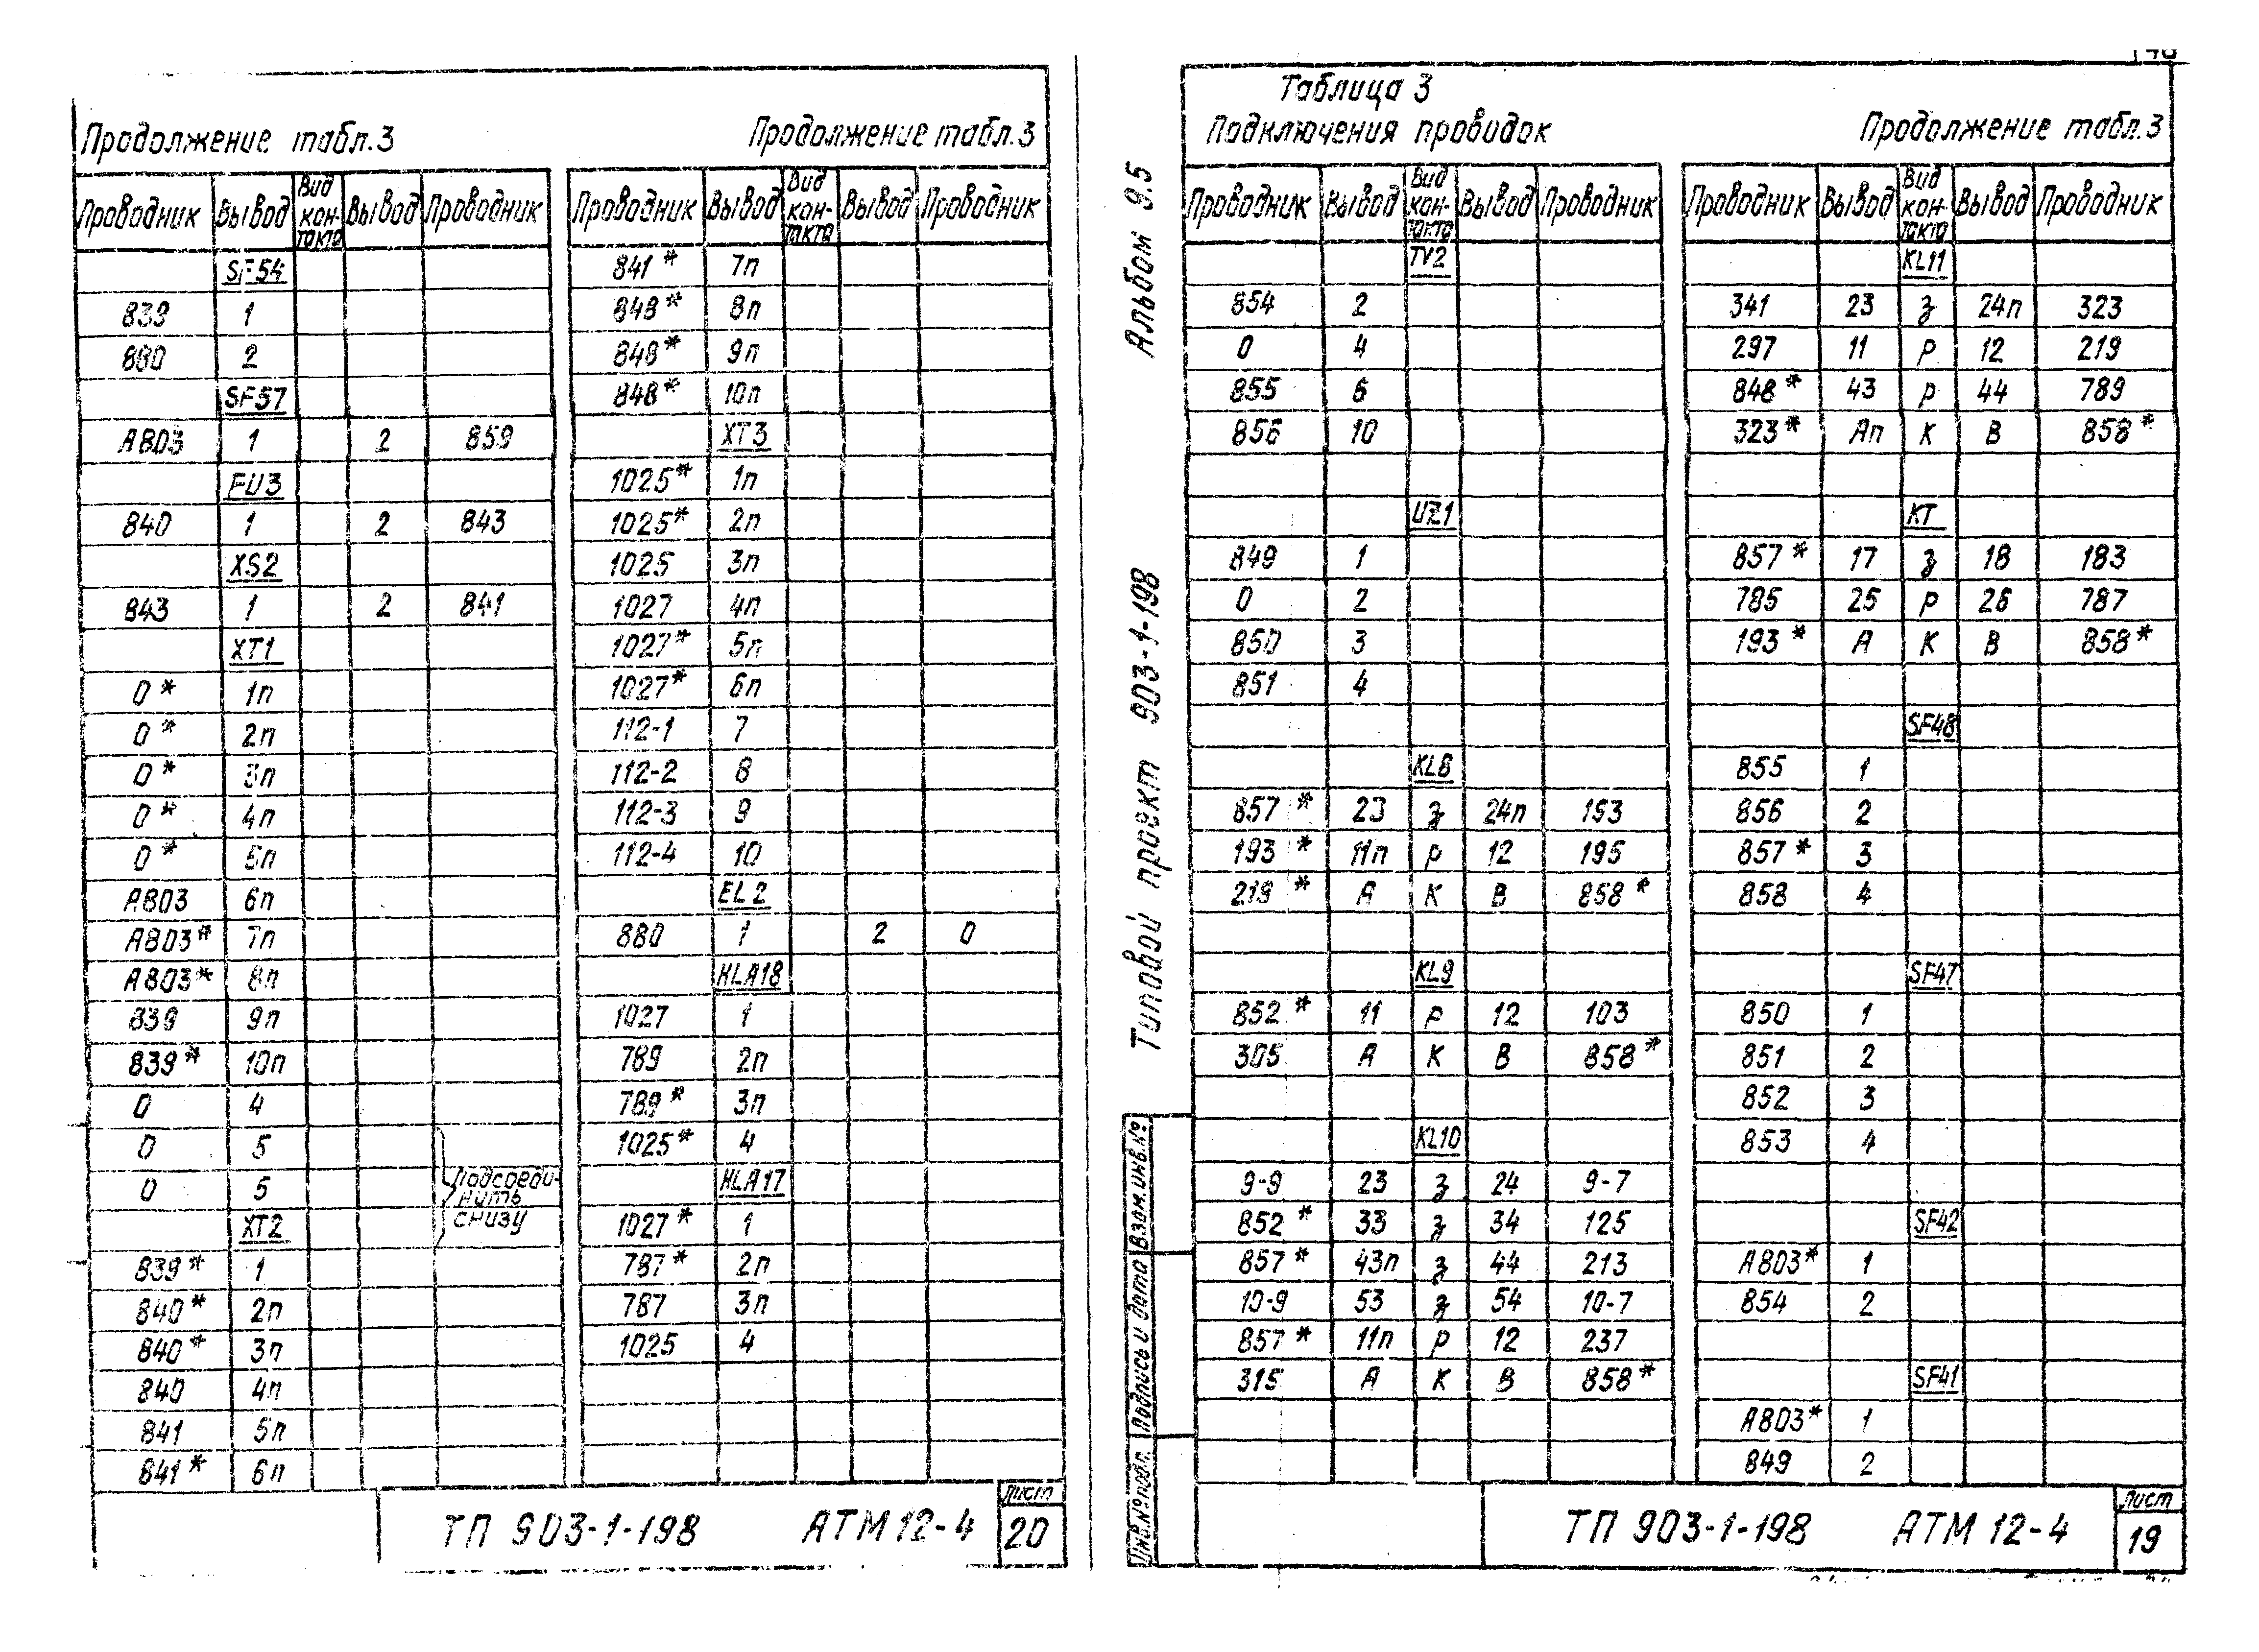 Продолжение табл.3
Проводник Вывод Вид кон-такта Вывод Проводник
SF54
839 1
880 2
SF57
А803 1 2 859
FU3
840 1 2 843
XS2
843 1 2 841
XT1
0* 1п
0* 2п
0* 3п
0* 4п
0* 5п
А803 6п
А803* 7п
А803* 8п
839 9п
839* 10п
0 4
0 5
0 5
Подсоеди-
нить
снизу
XT2
839* 1
840* 2п
840* 3п
840 4п
841 5п
841* 6п
Продолжение табл.3
Проводник Вывод Вид кон-такта Вывод Проводник
841* 7п
848* 8п
848* 9п
848* 10п
XT3
1025* 1п
1025* 2п
1025 3п
1027 4п
1027* 5п
1027* 6п
112-1 7
112-2 8
112-3 9
112-4 10
EL2
880 1 2 0
HLA18
1027 1
789 2п
789* 3п
1025* 4
HLA17
1027* 1
787* 2п
787 3п
1025 4
ТП 903-1-198 АТМ12-4
Лист
20
Альбом 9.5
Типовой проект 903-1-198
Взам.инв.№
Подпись и дата
Инв.№ подл.
Таблица 3
Подключения проводок
Проводник Вывод Вид кон-такта Вывод Проводник
TV2
854 2
0 4
855 6
856 10
UZ1
849 1
0 2
850 3
851 4
KL8
857* 23 з 24п 153
193* 11п р 12 195
219* А К В 858*
KL9
852* 11 р 12 103
305 А К В 858*
KL10
9-9 23 з 24 9-7
852* 33 з 34 125
857* 43п з 44 213
10-9 53 з 54 10-7
857* 11п р 12 237
315 А К В 858*
Продолжение табл.3
Проводник Вывод Вид кон-такта Вывод Проводник
KL11
341 23 з 24п 323
297 11 р 12 219
848* 43 р 44 789
323* Ап К В 858*
KT
857* 17 з 18 183
785 25 р 26 787
193* А К В 858*
SF48
855 1
856 2
857* 3
858 4
SF47
850 1
851 2
852 3
853 4
SF42
А803* 1
854 2
SF41
А803* 1
849 2
ТП 903-1-198 АТМ 12-4
Лист
19